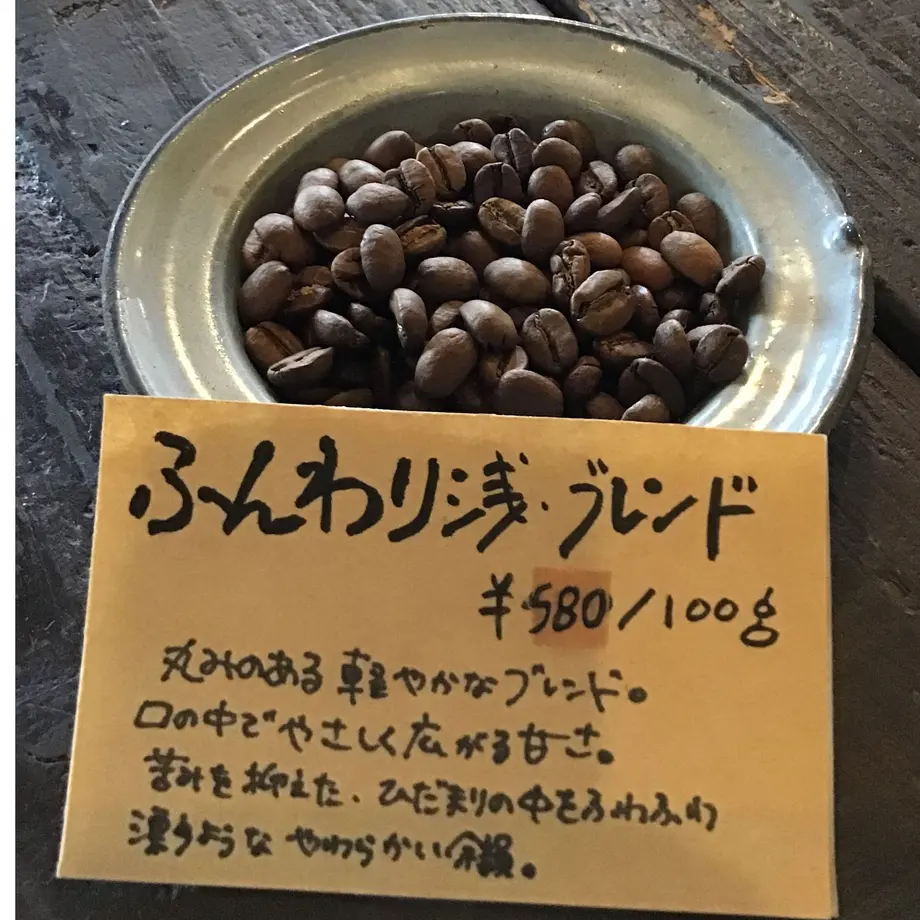 ふんわり浅・ブレンド
¥580/100g
丸みのある軽やかなブレンド。
口の中でやさしく広がる甘さ。
苦みを抑えた、ひだまりの中をふわふわ
漂うようなやわらかい余韻。